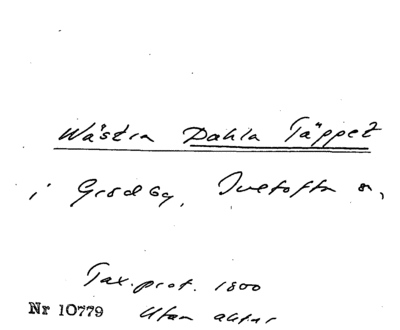 Wästra Dahla Täppet
i Grödby, Tuetofta s,
Tax.prot. 1800
Nr 10779 Utan aktar